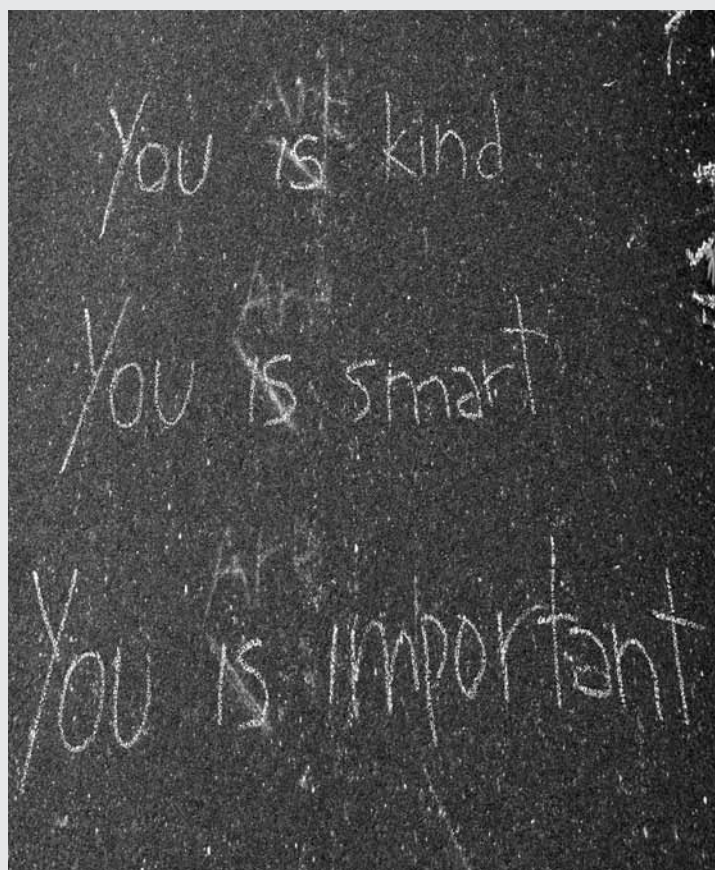 Are
You is kind
Are
You is smart
Are
You is important